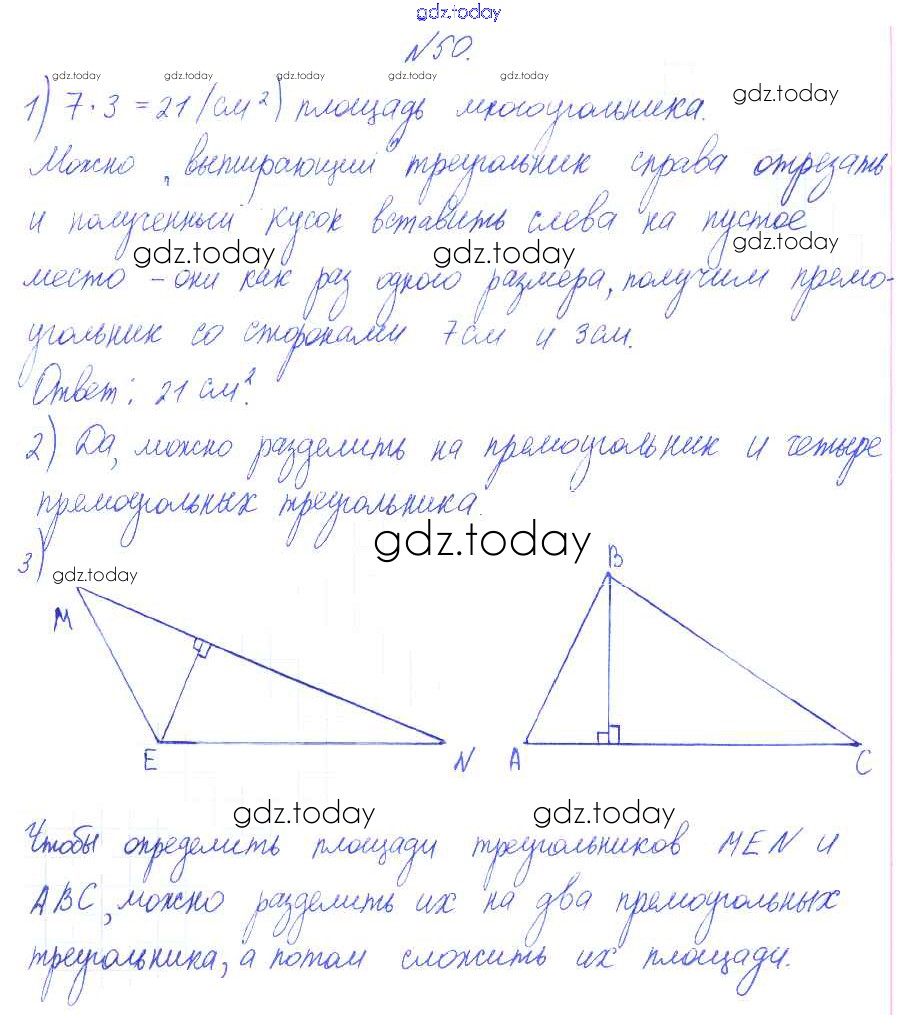 gdz.today
№50.
gdz.today gdz.today gdz.today gdz.today gdz.today
1) 7·3=21(см²) площадь многоугольника. gdz.today
Можно, выпирающий треугольник справа отрезать
и полученный кусок вставить слева на пустое
gdz.today gdz.today gdz.today
место – они как раз одного размера, получим прямо-
угольник со сторонами 7см и 3см.
Ответ: 21 см².
2) Да, можно разделить на прямоугольник и четыре
прямоугольных треугольника.
gdz.today
3)
gdz.today
B
M
E N A C
gdz.today gdz.today
Чтобы определить площади треугольников MEN и
ABC, можно разделить их на два прямоугольных
треугольника, а потом сложить их площади.